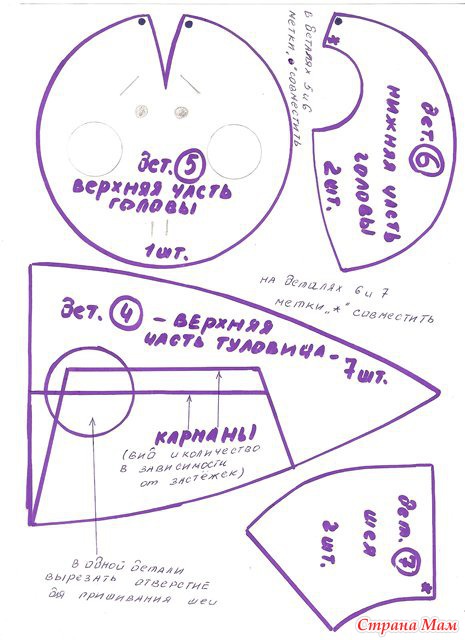 дет. 5
верхняя часть
головы
1 шт.
в деталях 5 и 6
метки „о" совместить
*
дет. 6
нижняя часть
головы
2 шт.
на деталях 6 и 7
метки „*" совместить
дет. 4 - верхняя
часть туловища -
7 шт.
карманы
(вид и количество
в зависимости
от застёжек)
в одной детали
вырезать отверстие
для пришивания шеи
дет. 7
шея
2 шт.
*
Страна Мам